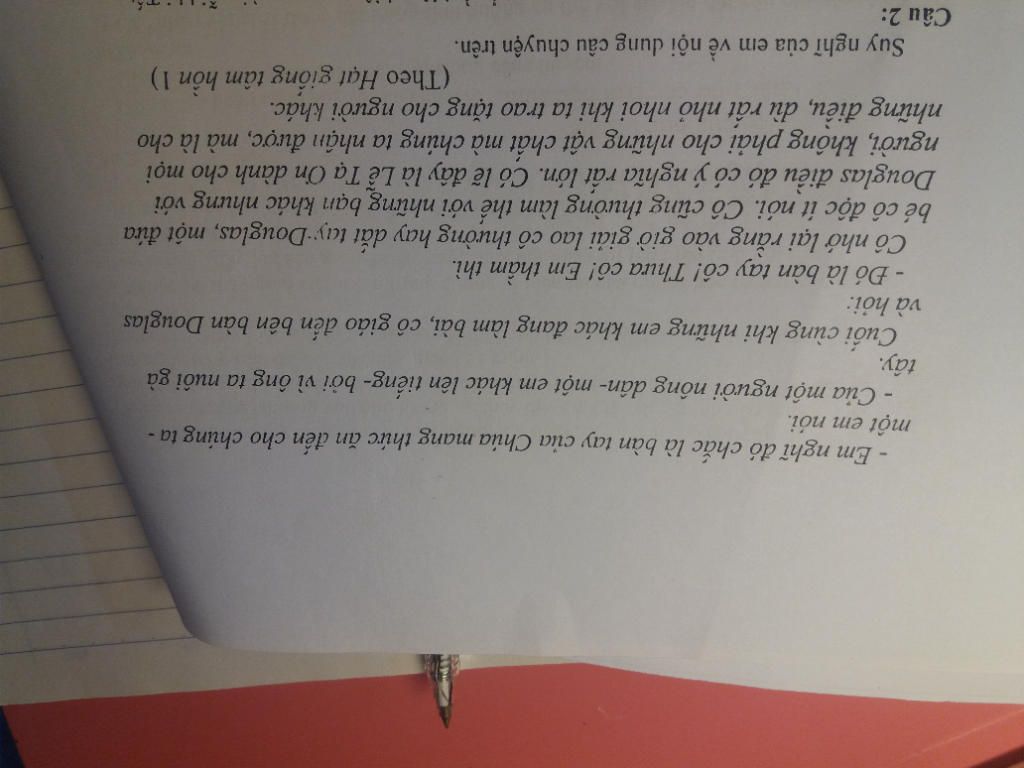 - Em nghĩ đó chắc là bàn tay của Chúa mang thức ăn đến cho chúng ta -
một em nói.
- Của một người nông dân- một em khác lên tiếng- bởi vì ông ta nuôi gà
tây.
Cuối cùng khi những em khác đang làm bài, cô giáo đến bên bàn Douglas
và hỏi:
- Đó là bàn tay cô! Thưa cô! Em thầm thì.
Cô nhớ lại rằng vào giờ giải lao cô thường hay dắt tay Douglas, một đứa
bé cô độc ít nói. Cô cũng thường làm thế với những bạn khác nhưng với
Douglas điều đó có ý nghĩa rất lớn. Có lẽ đây là Lễ Tạ Ơn dành cho mọi
người, không phải cho những vật chất mà chúng ta nhận được, mà là cho
những điều, dù rất nhỏ nhoi khi ta trao tặng cho người khác.
(Theo Hạt giống tâm hồn 1)
Suy nghĩ của em về nội dung câu chuyện trên.
Câu 2: